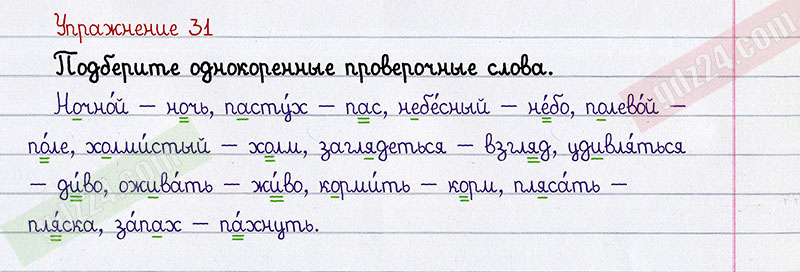 Упражнение 31
Подберите однокоренные проверочные слова.
Ночно́й – ночь, пасту́х – пас, небе́сный – не́бо, полево́й –
по́ле, холми́стый – холм, заглядеться – взгляд, удивля́ться
– ди́во, ожива́ть – жи́во, корми́ть – корм, пляса́ть –
пля́ска, за́пах – па́хнуть.
ydz24.com
ydz24.com